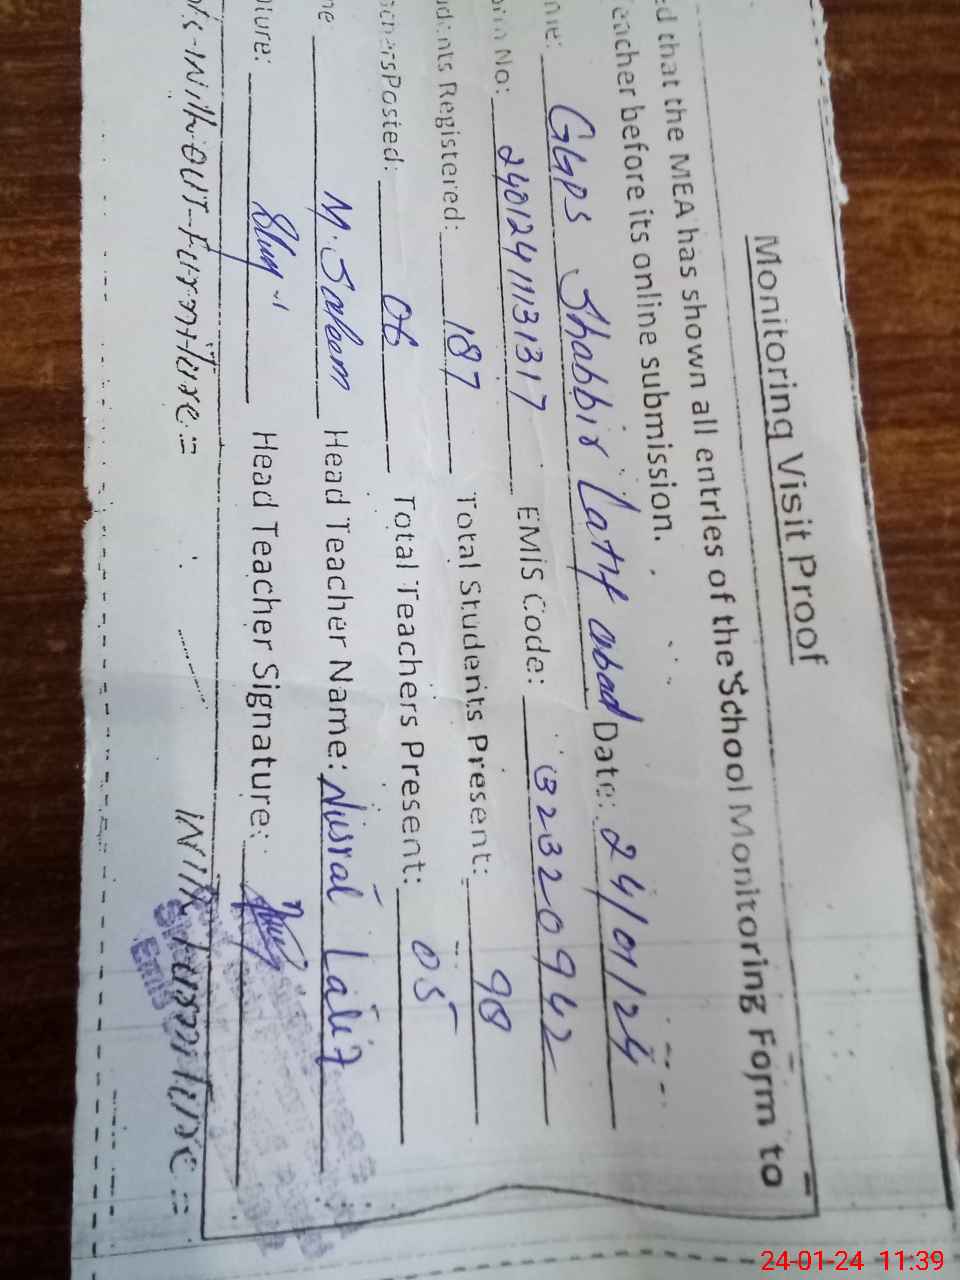 Monitoring Visit Proof
ed that the MEA has shown all entries of the School Monitoring Form to
eacher before its online submission.
me: GGPS Shabbir Latif abad Date: 24/01/24
No: 24012411131317 EMIS Code: 32320942
udents Registered: 187 Total Students Present: 98
achersPosted: 06 Total Teachers Present: 05
me: M. Saleem Head Teacher Name: Nusrat Latif
ature: Head Teacher Signature:
WithOUT Furniture = With Furniture =
Emis
24-01-24 11:39